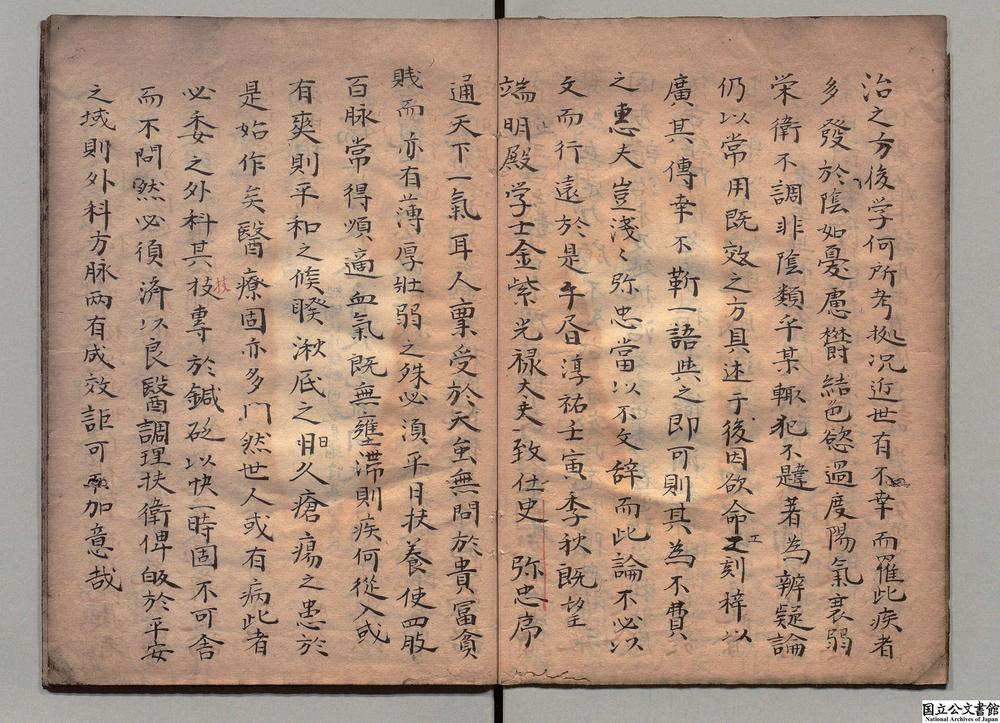 治之方後学何所考拠況近世有不幸而罹此疾者
多發於陰如憂慮欝結色慾過度陽氣衰弱
栄衛不調非陰類乎某輙犯不韙著為辨疑論
仍以常用既效之方具述于後因欲命工刻梓以
廣其傳幸不靳一語與之即可則其為不費
之惠夫豈淺〻弥忠當以不文辞而此論不必以
文而行遠於是乎書淳祐壬寅季秋既望
端明殿学士金紫光禄大夫致仕史 弥忠序
通天下一氣耳人稟受於天虽無問於貴冨貪
賎而亦有薄厚壯弱之殊必湏平日扶養使四股
百脉常得順適血氣既無壅滞則疾何從入或
有爽則平和之候睽湫底之日久瘡瘍之患於
是始作矣醫療固亦多門然世人或有病此者
必委之外科其技専於鍼砭以快一時固不可舎
而不問然必須濟以良醫調理扶衛俾皈於平安
之域則外科方脉两有成效詎可不加意哉
技
工
国立公文書館
National Archives of Japan